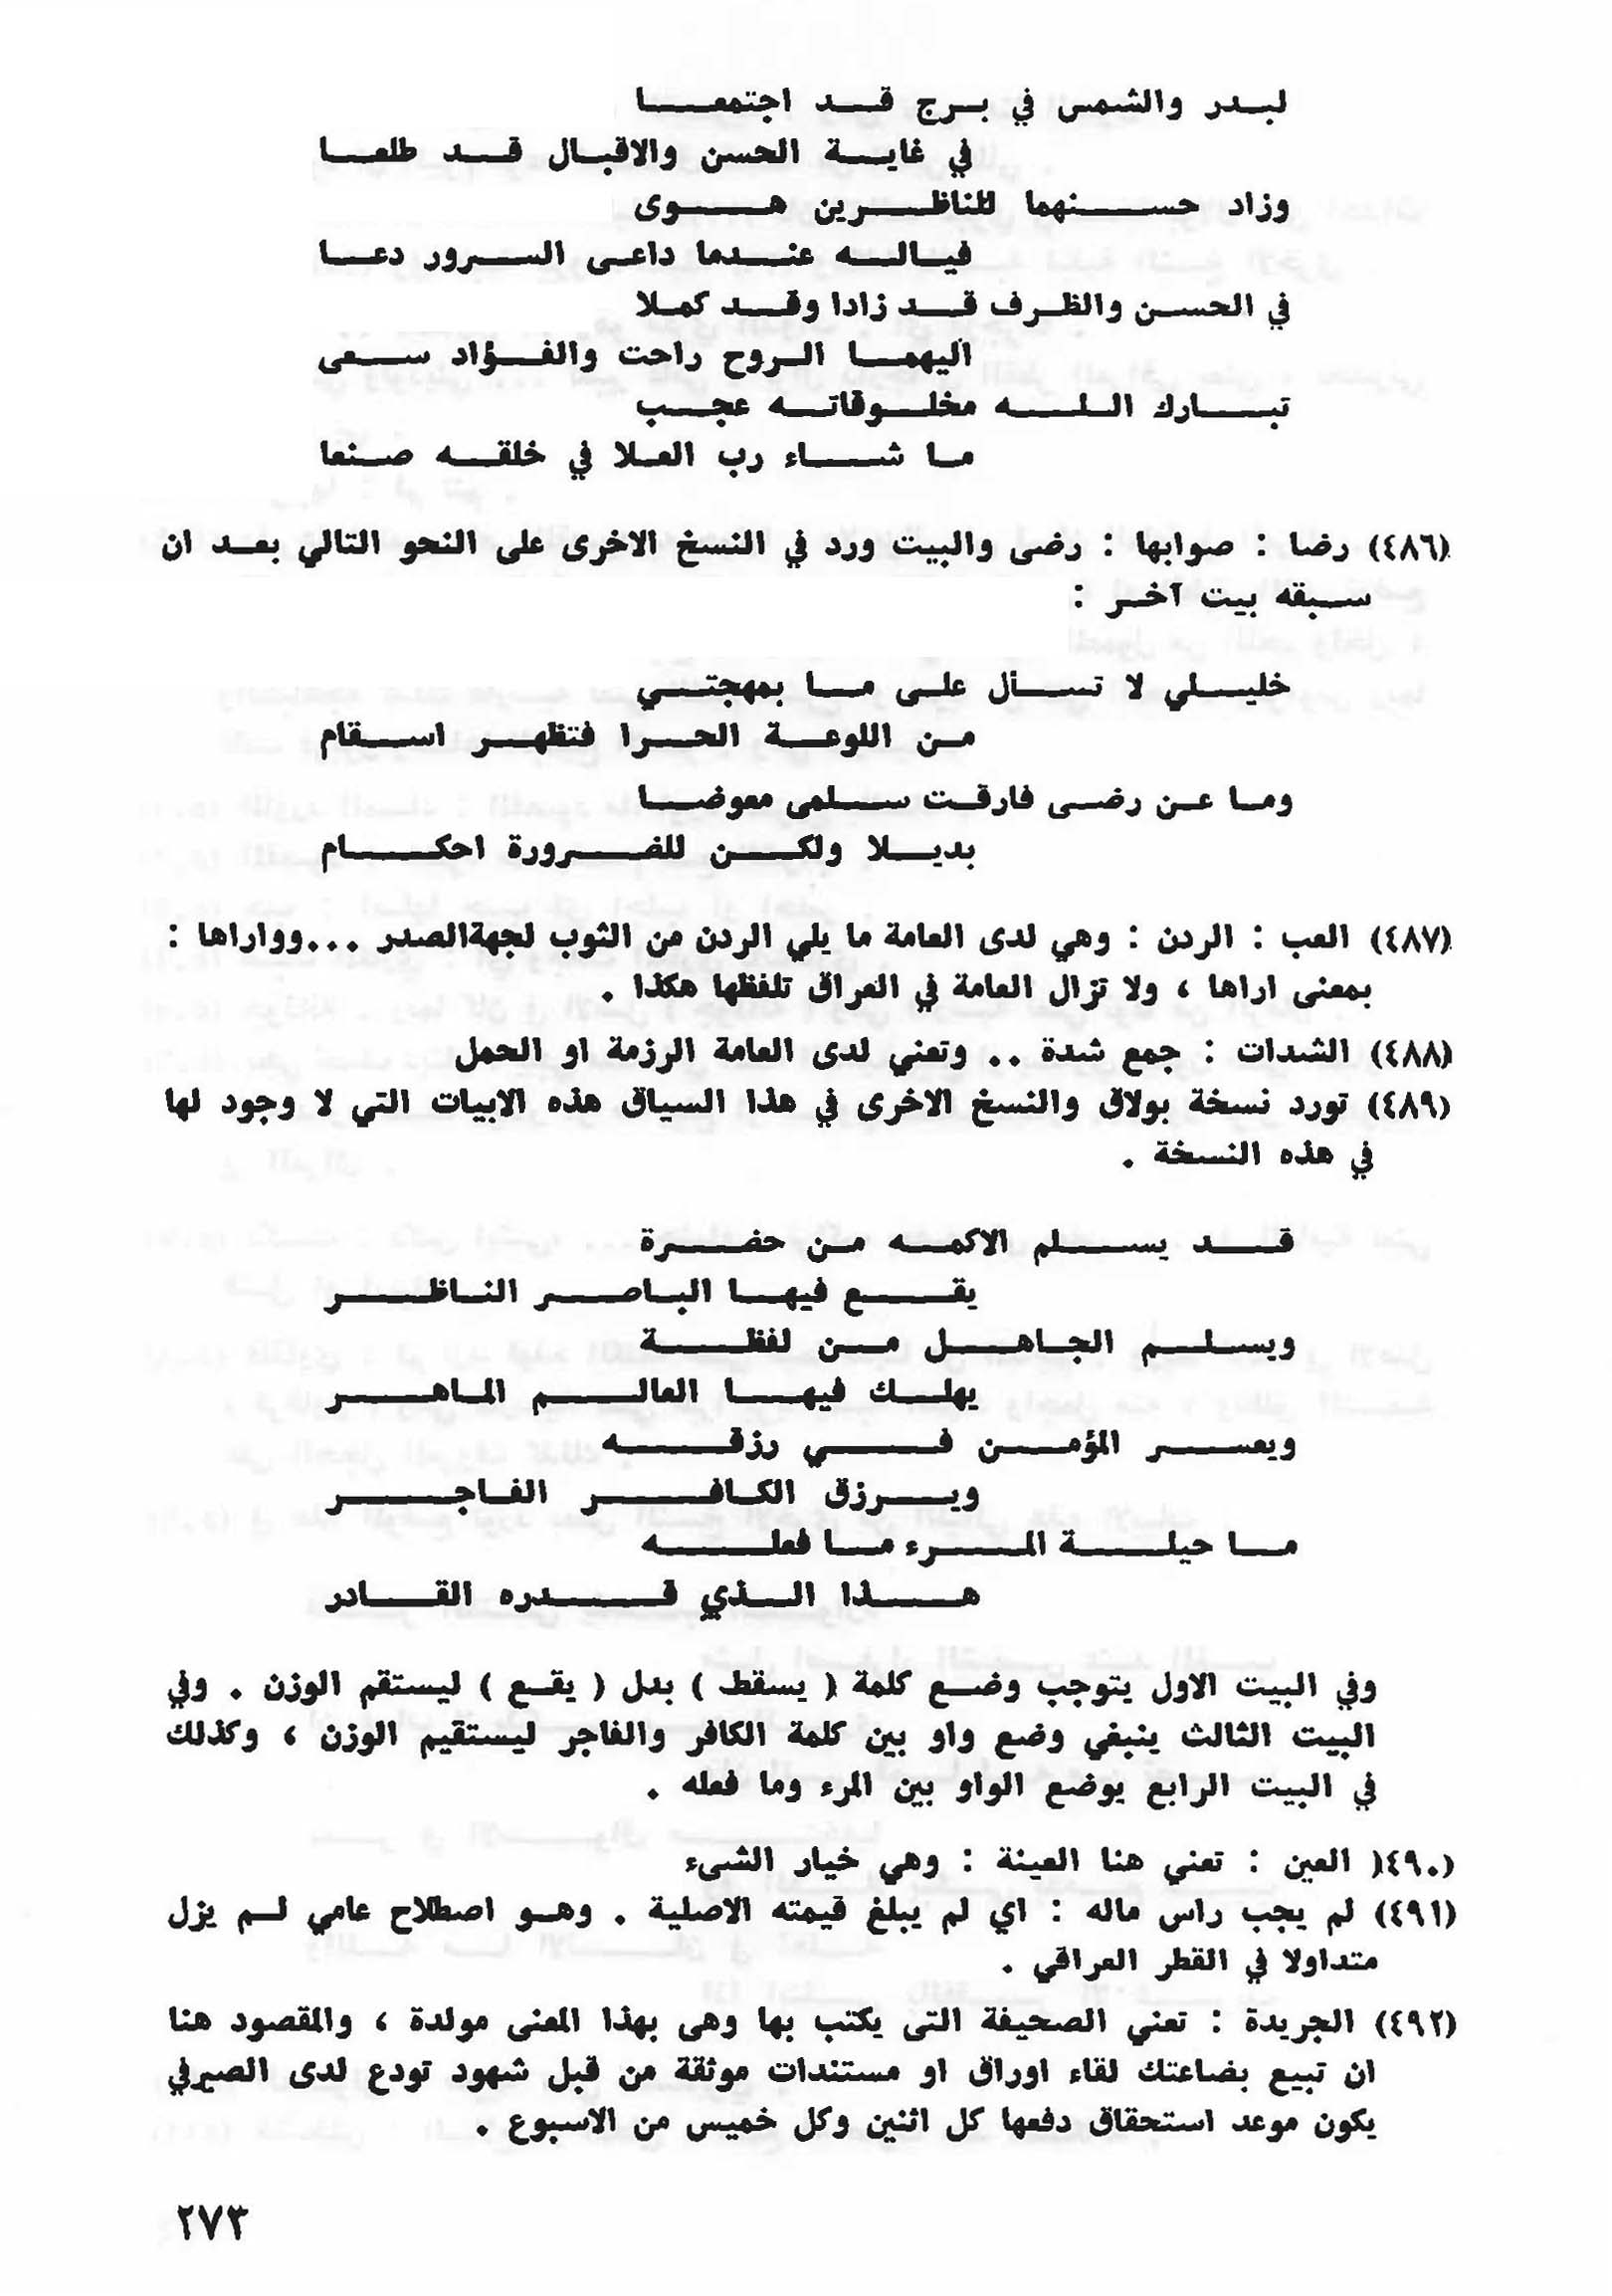 لبدر والشمس في برج قد اجتمعا
في غاية الحسن والاقبال قد طلعا
وزاد حسنهما للناظرين هوى
فياله عندما داعى السرور دعا
في الحسن والظرف قد زادا وقد كملا
اليهما الروح راحت والفؤاد سعى
تبارك الله مخلوقاته عجب
ما شاء رب العلا في خلقه صنعا
(٤٨٦) رضا : صوابها : رضى والبيت ورد في النسخ الاخرى على النحو التالي بعد ان
سبقه بيت آخر :
خليلي لا تسأل على ما بمهجتي
من اللوعة الحرا فتظهر اسقام
وما عن رضى فارقت سلمى معوضا
بديلا ولكن للضرورة احكام
(٤٨٧) العب : الردن : وهي لدى العامة ما يلي الردن من الثوب لجهةالصدر ...وواراها :
بمعنى اراها ، ولا تزال العامة في العراق تلفظها هكذا .
(٤٨٨) الشدات : جمع شدة .. وتعني لدى العامة الرزمة او الحمل
(٤٨٩) تورد نسخة بولاق والنسخ الاخرى في هذا السياق هذه الابيات التي لا وجود لها
في هذه النسخة .
قد يسلم الاكمه من حفرة
يقع فيها الباصر الناظر
ويسلم الجاهل من لفظة
يهلك فيها العالم الماهر
ويعسر المؤمن في رزقه
ويرزق الكافر الفاجر
ما حيلة المرء ما فعله
هذا الذي قدره القادر
وفي البيت الاول يتوجب وضع كلمة ( يسقط ) بدل ( يقع ) ليستقم الوزن . وفي
البيت الثالث ينبغي وضع واو بين كلمة الكافر والفاجر ليستقيم الوزن ، وكذلك
في البيت الرابع يوضع الواو بين المرء وما فعله .
(٤٩٠) العين : تعني هنا العينة : وهي خيار الشىء
(٤٩١) لم يجب راس ماله : اي لم يبلغ قيمته الاصلية . وهو اصطلاح عامي لم يزل
متداولا في القطر العراقي .
(٤٩٢) الجريدة : تعني الصحيفة التى يكتب بها وهى بهذا المعنى مولدة ، والمقصود هنا
ان تبيع بضاعتك لقاء اوراق او مستندات موثقة من قبل شهود تودع لدى الصيرفي
يكون موعد استحقاق دفعها كل اثنين وكل خميس من الاسبوع .
٢٧٣